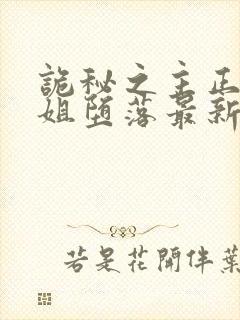 詭秘之主正
姐堕落最新
若是花開伴葉